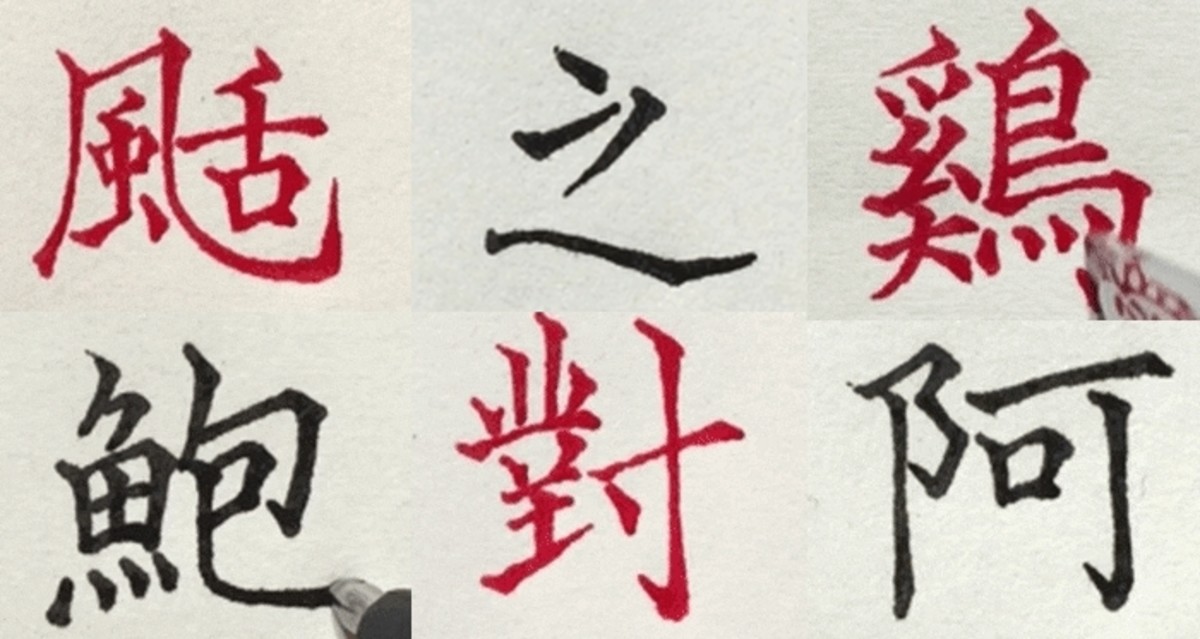 颳之鷄
鮑對阿